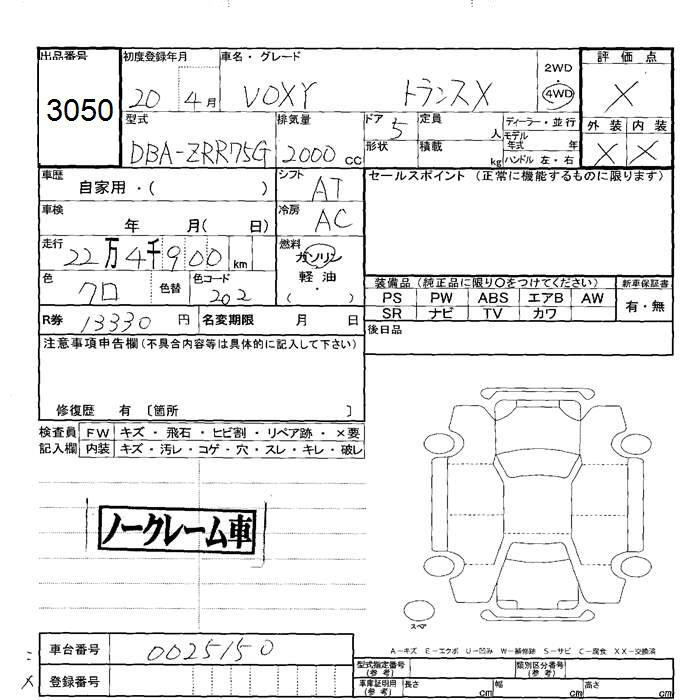 出品番号 初度登録年月 車名・グレード 2WD 評価点
3050 20 4月 VOXY トランスX ・ 4WD X
型式 排気量 ドア 5 定員 人 ディーラー・並行 外装 内装
DBA-ZRR75G 2000 cc 形状 積載 kg モデル年式 年 X X
ハンドル 左・右
車歴 自家用・( ) シフト AT セールスポイント (正常に機能するものに限ります)
車検 年 月( 日) 冷房 AC
走行 22万4千900 km 燃料 ガソリン
色 クロ 色替 色コード 202 軽油
・
( )
装備品 (純正品に限り〇をつけてください) 新車保証書
PS PW ABS エアB AW 有・無
SR ナビ TV カワ
R券 13330 円 名変期限 月 日 後日品
注意事項申告欄(不具合内容等は具体的に記入して下さい)
修復歴 有 〔箇所 〕
検査員 FW キズ・飛石・ヒビ割・リペア跡・×要
記入欄 内装 キズ・汚レ・コゲ・穴・スレ・キレ・破レ
ノークレーム車
スペア
A-キズ E-エクボ U-凹み W-補修跡 S-サビ C-腐食 XX-交換済
車台番号 0025150
登録番号
型式指定番号(参考) 類別区分番号(参考)
車庫証明用(参考) 長さ cm 幅 cm 高さ cm